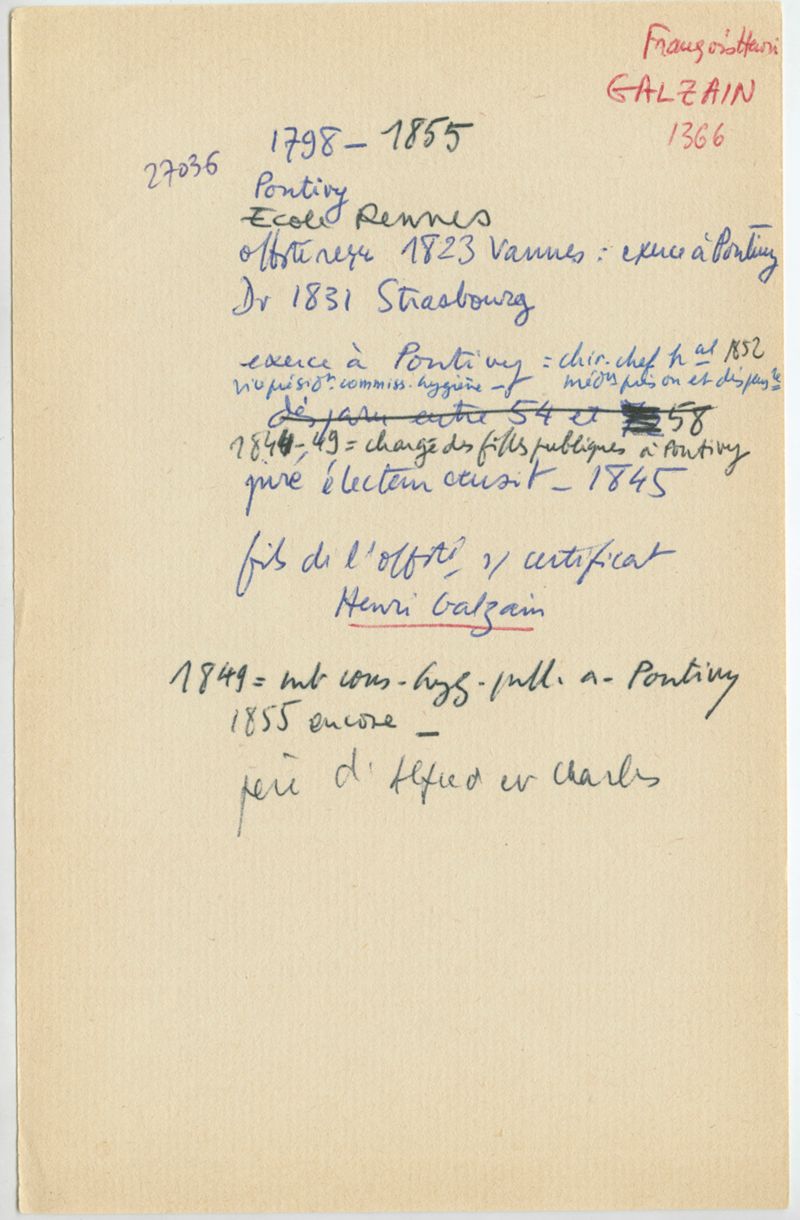 François Henri
GALZAIN
1366
1798 - 1855
27036
Pontivy
Ecole Rennes
offté reçu 1823 Vannes : exerce à Pontivy
Dr 1831 Strasbourg
exerce à Pontivy = chir. chef hal 1852
vice présidt. commiss. hygiène - médn prison et dispensre
disparu entre 54 et 58
1844-49 = chargé des filles publiques à Pontivy
juré électeur censit - 1845
fils de l'offté, s/ certificat
Henri Galzain
1849 = mb cons. hyg. publ. a- Pontivy
1855 encore -
père d'Alfred et Charles